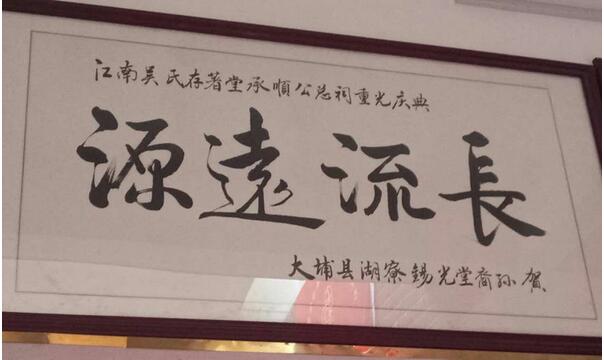 江南吴氏存著堂承順公总祠重光庆典
源遠流長
大埔县湖寮锡光堂裔孙贺